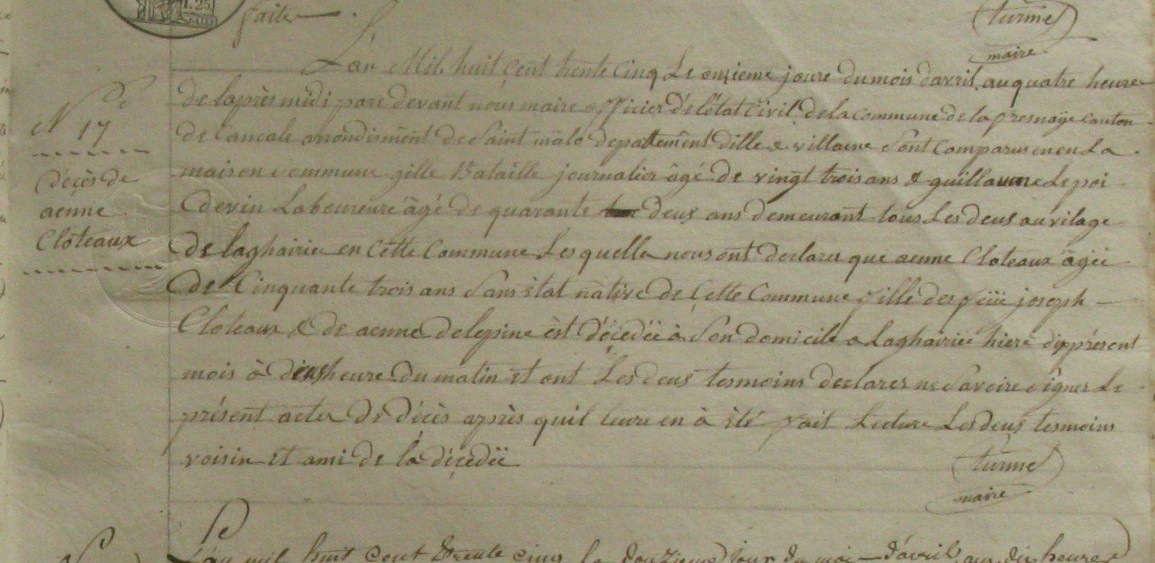 1.25
faite
turmel
maire
L'an Mil huit cent trente cinq Le onzieme joure du mois davril au quatre heure
N° 17
Décès de
aenne
Cloteaux
de laprès midi pare devant nous maire officier de l'état Civil de la commune de la fresnaye canton
de Cancale arrondisment de Saint malo depattement dille & villaine Sont Comparus en en La
maison Commune gille Bataille journalier âgé de vingt trois ans & guillaume Lepoi
devin Laboureure âgé de quarante deus ans demeurant tous Les deus au vilage
de laghairie en Cette Commune Lesquelle nous ont declare que aenne Cloteaux âgée
de Cinquante trois ans Sans état native de Cette Commune fille des feüe joseph
Cloteaux & de aenne delepine est décedée à Son domicile a Laghairie hiere dipprésent
mois à dixheure du matin et ont Les deus tesmoins declares ne Savoire Signer Le
présent acte de décès après quil leure en à été fait Lecture Les deus tesmoins
voisin et ami de la décedée
turmel
maire
L'an mil huit cent trente cinq le douzieme jour du moi d'avril aux dix heure